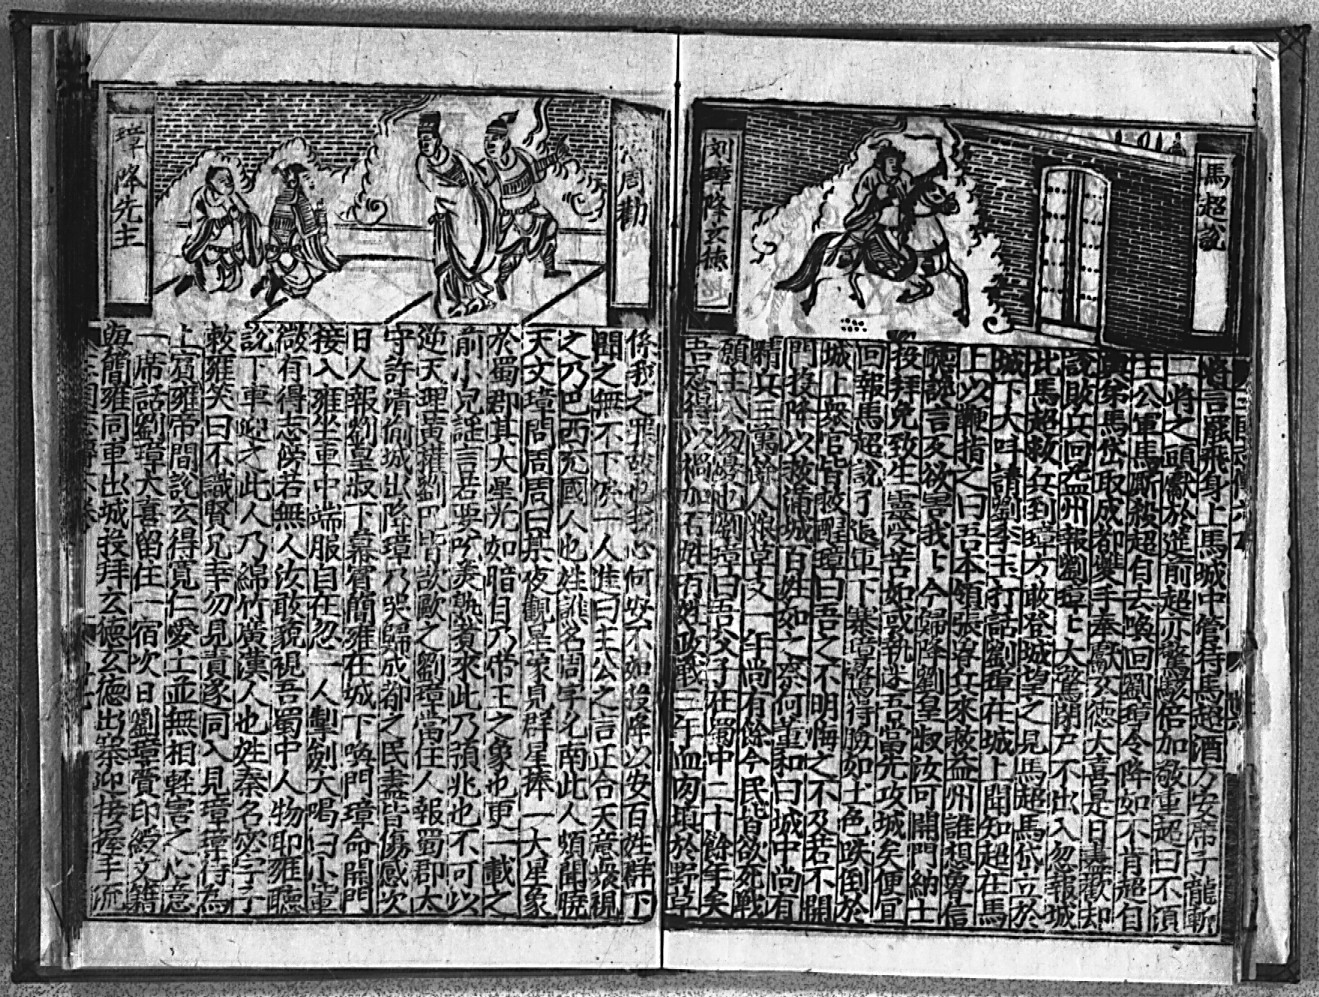 馬超說
劉璋降玄德
將言罷飛身上馬城中管待馬超酒方安席子龍斬
二將之頭獻於筵前超亦驚駭倍加敬重超曰不須
主公軍馬廝殺超自去喚回劉璋令降如不肯超自
與弟馬岱取成都雙手奉獻玄德大喜是日盡歡却
說敗兵回益州報劉璋璋大驚閉戶不出入忽報城
北馬超救兵到璋方敢登城望之見馬超馬岱立於
城下大呌請劉季玉打話劉璋在城上聞知超在馬
上以鞭指之曰吾本領張魯兵來救益州誰想魯信
聽讒言反欲害我今歸降劉皇叔汝可開門納土
投拜免致生靈受苦如或執迷吾當先攻城矣便宜
回報馬超說了退軍下寨璋驚得臉如土色跌倒於
城上眾官皆救醒璋曰吾之不明悔之不及若不開
門投降以救滿城百姓如之奈何董和曰城中尚有
精兵三萬餘人粮草支一年尚有餘今民皆欲死戰
願主公勿憂也劉璋曰吾父子在蜀中二十餘年矣
三年血肉塡於野草
周勸
璋降先主
係我之罪故也我心何安不如投降以安百姓群下
聞之無不下淚一人進曰主公之言正合天意眾視
之乃巴西充國人也姓譙名周字允南此人頗聞曉
天文璋問周周曰某夜觀星象見群星捧一大星象
於蜀郡其大星光如暗月乃帝王之象也更一載之
前小兒謠言若要吃羹須來此乃預兆也不可以
逆天理黃權劉巴皆欲歐之劉璋當住人報蜀郡太
守許清偷城出降璋乃哭歸成都之民盡皆傷感次
日人報劉皇叔下幕賓簡雍在城下喚門璋命開門
接入雍坐車中端服自在忽一人掣劍大喝曰小輩
微有得志傍若無人汝敢藐視吾蜀中人物耶雍聽
說下車迎之此人乃綿竹廣漢人也姓秦名宓字子
敕雍笑曰不識賢兄幸勿見責遂同入見璋璋待為
上賓雍帝間說玄得寬仁愛士並無相輕害之心意
一席話劉璋大喜留住一宿次日劉璋賷印綬文籍
與簡雍同車出城投拜玄德玄德出寨迎接握手流